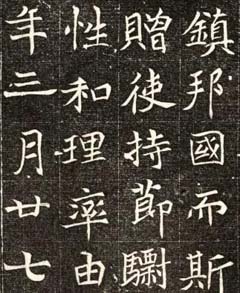 鎮邦國而斯
贈使持節驃
性和理率由
年三月廿七